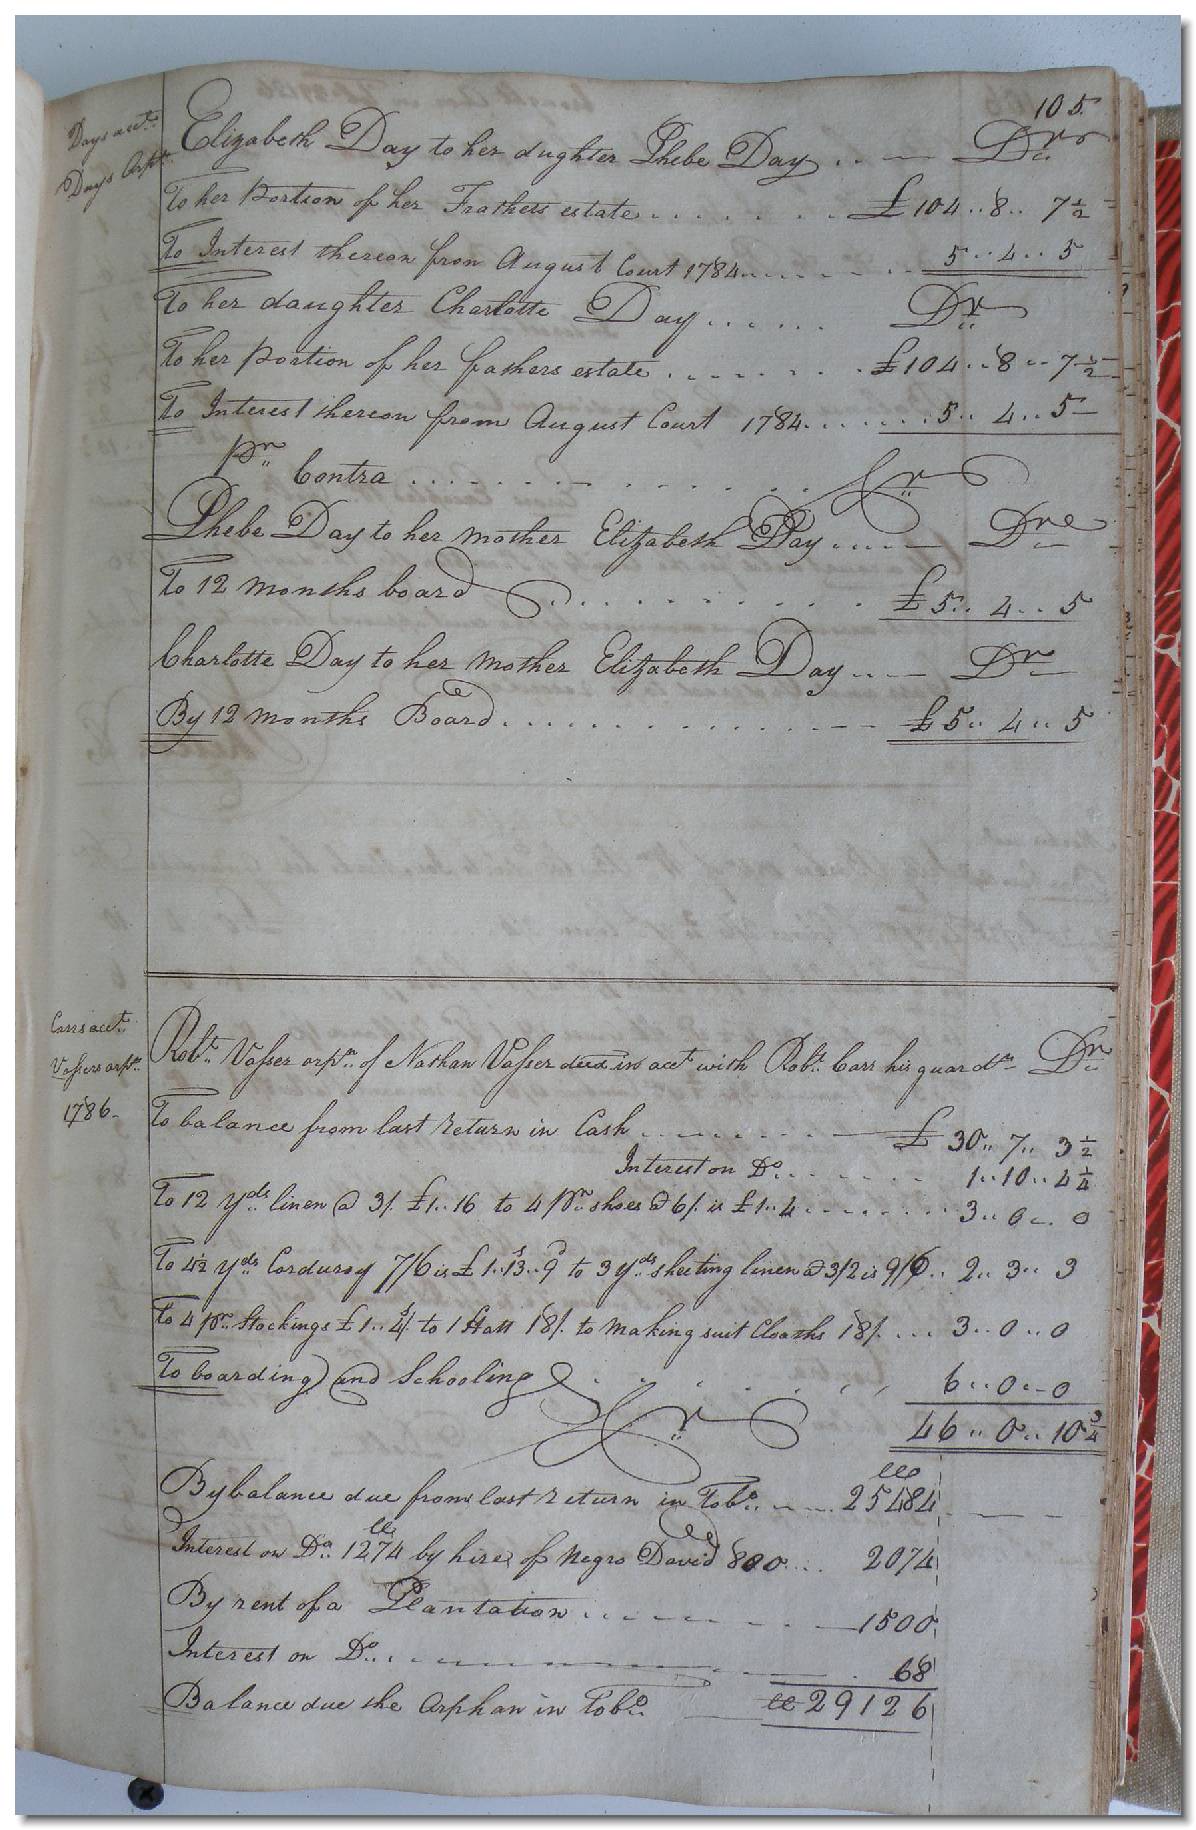 105.
Days acct.
Days Orpn
Elizabeth Day to her dughter Phebe Day .. — Drs
To her Portion of her Frathers estate........ £104..8..7½
To Interest thereon from August Court 1784........ 5..4..5
To her daughter Charlotte Day ...... Dr
To her portion of her fathers estate ........ £104..8..7½
To Interest thereon from August Court 1784...... 5..4..5
Pr Contra .......... Cr
Phebe Day to her mother Elizabeth Day ..... Dre
To 12 months board .......... £5..4..5
Charlotte Day to her Mother Elizabeth Day .... Dr
By 12 months Board .......... £5..4..5
Carrs acct.
Vassers orpn.
1786-
Robt. Vasser orpn. of Nathan Vasser decd in act with Robt. Carr his guardn Dr
To balance from last return in Cash ........ £ 30..7..3½
Interest on Do....... 1..10..4¼
To 12 yds linen @ 3/. £1..16 to 4 pr. shoes @ 6/. is £1..4........ 3..0..0
To 4½ yds Corduroy 7/6 is £1..13s..9d to 3 yds sheeting linen @ 3/2 is 9/6.. 2..3..3
To 4 pr. Stockings £1..4/. to 1 Hatt 18/. to making suit Cloaths 18/. ... 3..0..0
To boarding and Schooling ........ 6..0..0
46..0..10¾
Cr
By balance due from last return in Tobo. .... 25484
Interest on Do. 1274 by hire of Negro David 800.... 2074
By rent of a Plantation ........ 1500
Interest on Do........ 68
Balance due the Orphan in Tobo. 29126